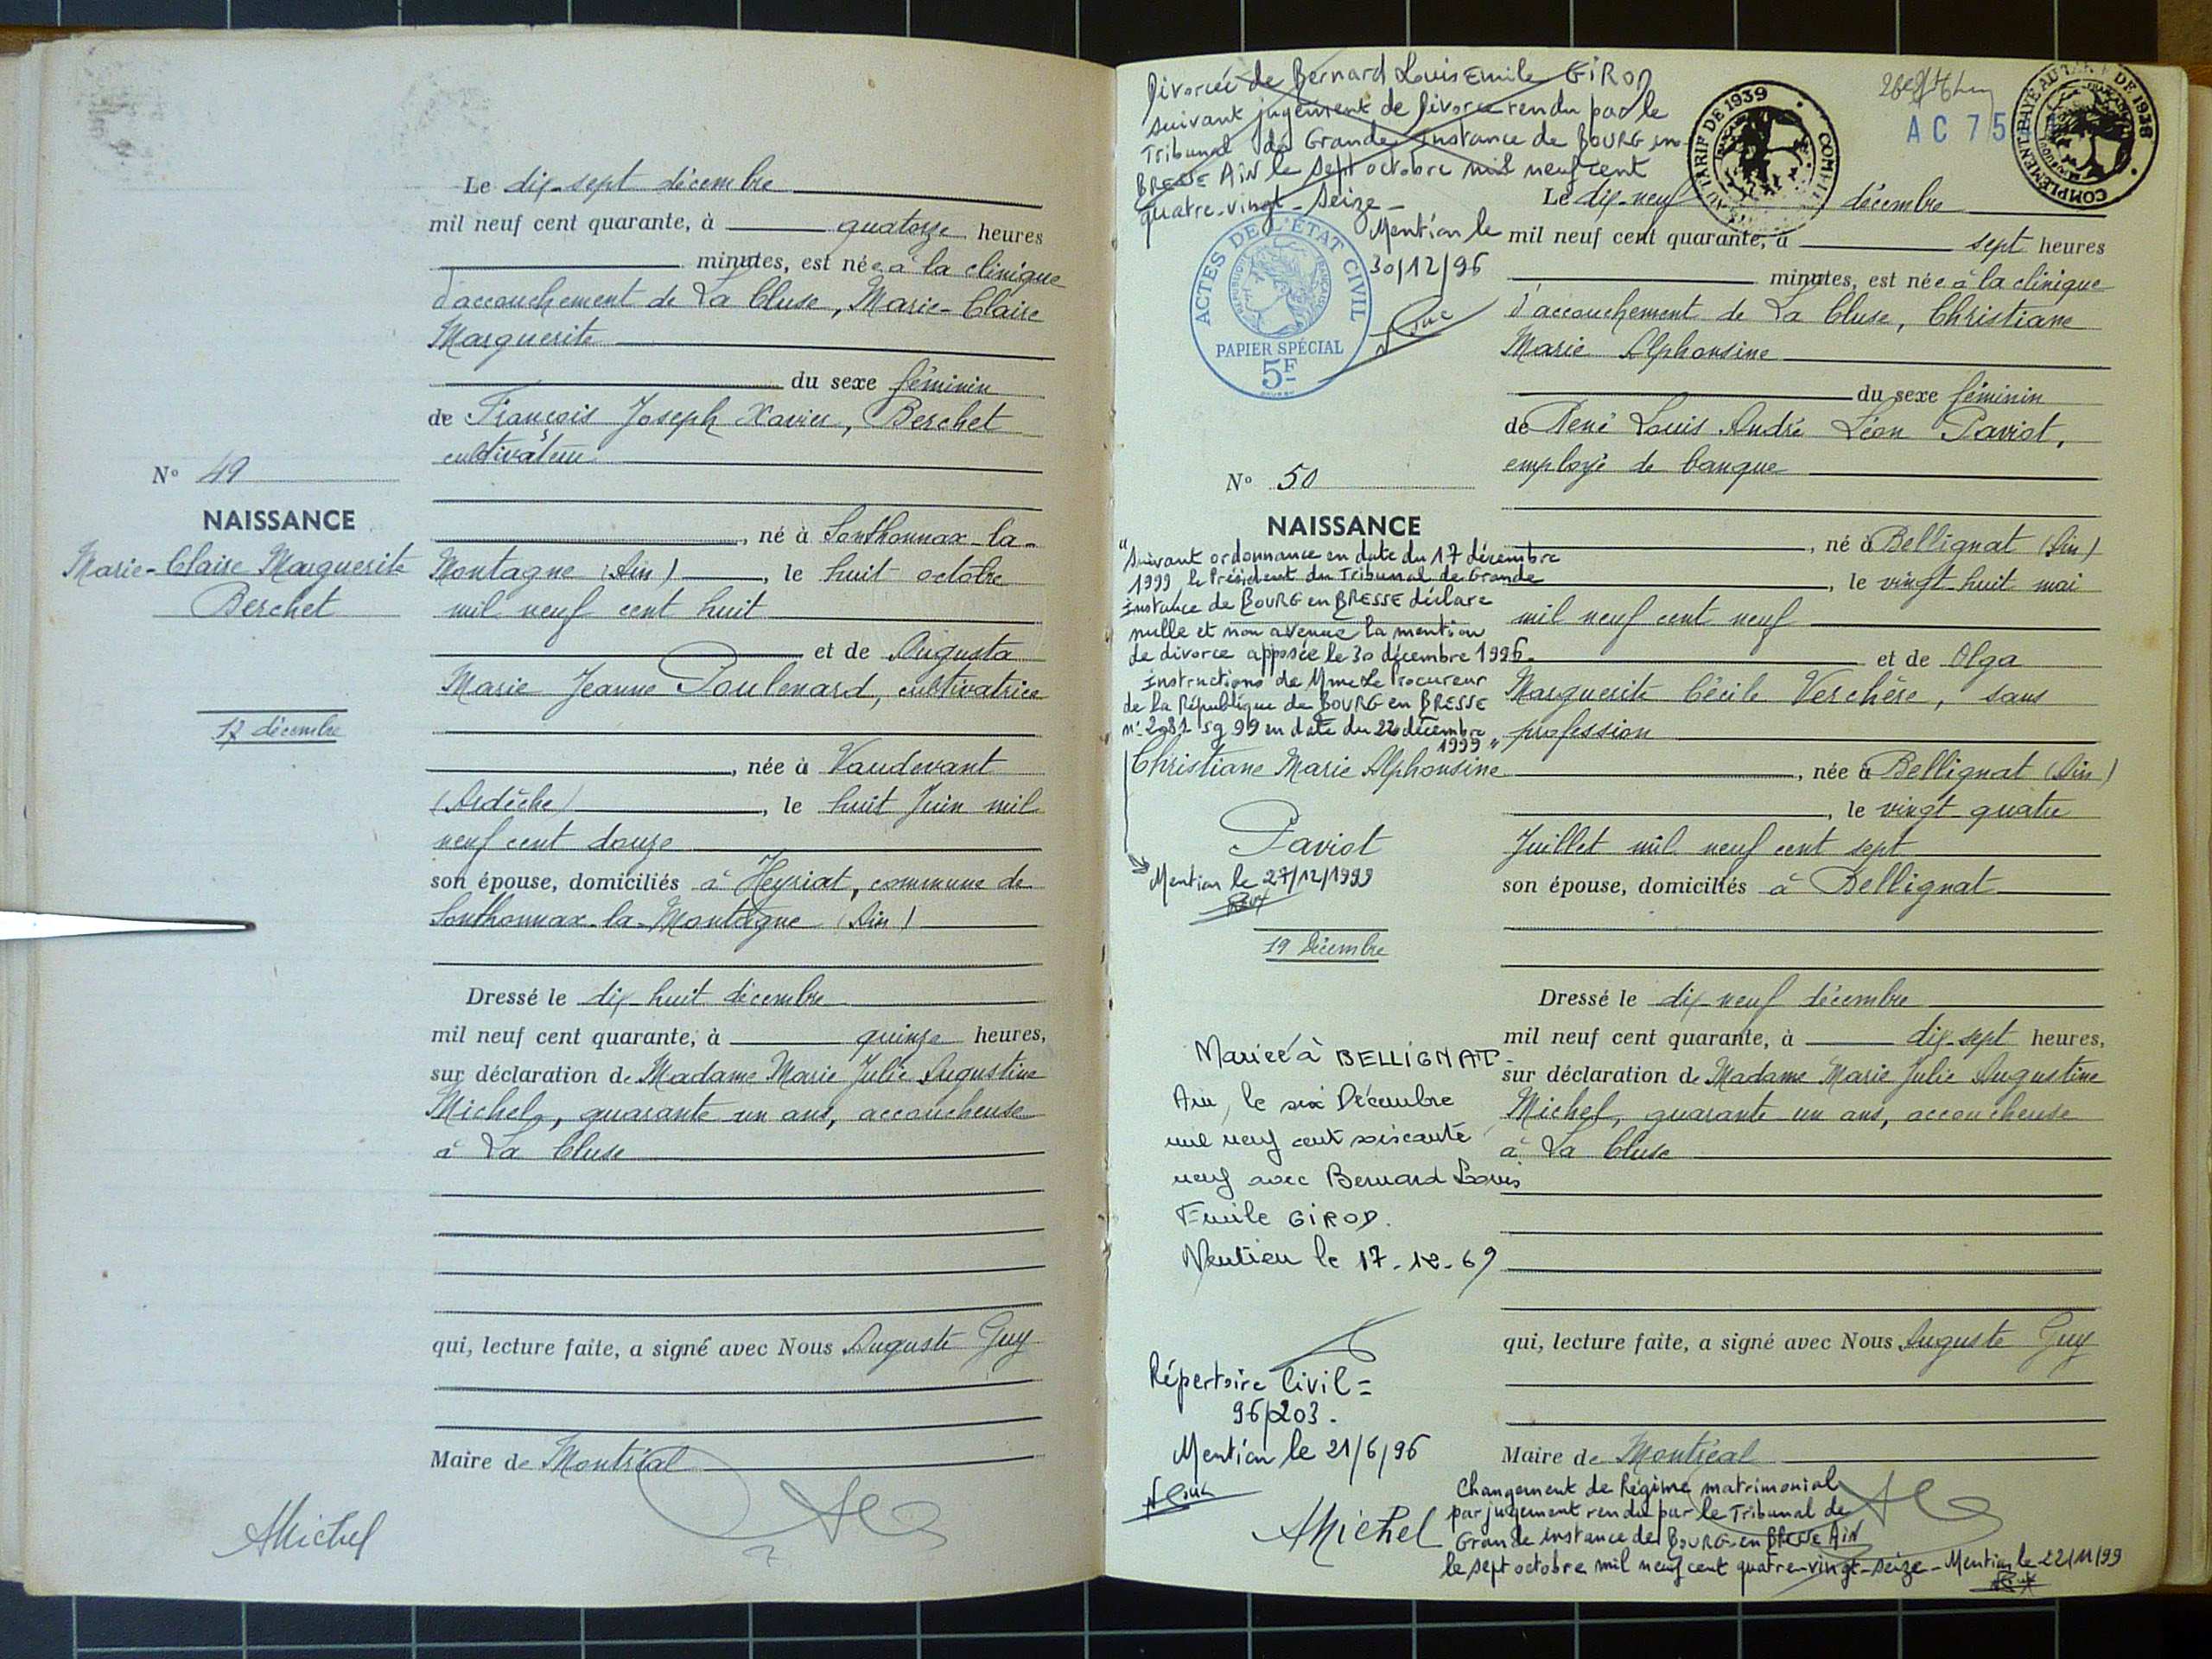 Le dix-sept décembre
mil neuf cent quarante, à quatorze heures
minutes, est née à la clinique
d'accouchement de La Cluse, Marie-Claire
Marguerite
du sexe féminin
de François Joseph Xavier, Berchet
cultivateur
N° 49
NAISSANCE
Marie-Claire Marguerite
Berchet
17 décembre
, né à Sonthonnax-la-
Montagne (Ain), le huit octobre
mil neuf cent huit
et de Augusta
Marie Jeanne Poulenard, cultivatrice
, née à Vaudevant
(Ardèche), le huit Juin mil
neuf cent douze
son épouse, domiciliés à Heyriat, commune de
Sonthonnax-la-Montagne (Ain)
Dressé le dix-huit décembre
mil neuf cent quarante, à quinze heures,
sur déclaration de Madame Marie Julie Augustine
Michel, quarante un ans, accoucheuse
à La Cluse
qui, lecture faite, a signé avec Nous Auguste Guy
Maire de Montréal
AMichel
Divorcée de Bernard Louis Emile GIROD
suivant jugement de divorce rendu par le
Tribunal de Grande Instance de BOURG en
BRESSE AIN le sept octobre mil neuf cent
quatre-vingt-seize -
Mention le
30/12/96
ACTES DE L'ÉTAT CIVIL
RÉPUBLIQUE FRANÇAISE
PAPIER SPÉCIAL
5F
AU TARIF DE 1939
AC 75
COMPLÉMENT PAYÉ AU TARIF DE 1938
Le dix-neuf décembre
mil neuf cent quarante, à sept heures
minutes, est née à la clinique
d'accouchement de La Cluse, Christiane
Marie Alphonsine
du sexe féminin
de René Louis André Léon Paviot,
employé de banque
N° 50
NAISSANCE
"Suivant ordonnance en date du 17 décembre
1999 le Président du Tribunal de Grande
Instance de BOURG en BRESSE déclare
nulle et non avenue la mention
de divorce apposée le 30 décembre 1996.
Instructions de Mme Le Procureur
de la République de BOURG en BRESSE
n° 2081 sg 99 en date du 22 décembre
1999"
Christiane Marie Alphonsine
Paviot
Mention le 27/12/1999
19 Décembre
, né à Bellignat (Ain)
, le vingt-huit mai
mil neuf cent neuf
et de Olga
Marguerite Cécile Verchère, sans
profession
, née à Bellignat (Ain)
, le vingt-quatre
Juillet mil neuf cent sept
son épouse, domiciliés à Bellignat
Dressé le dix-neuf décembre
mil neuf cent quarante, à dix-sept heures,
sur déclaration de Madame Marie Julie Augustine
Michel, quarante un ans, accoucheuse
à La Cluse
Mariée à BELLIGNAT
Ain, le six Décembre
mil neuf cent soixante
neuf avec Bernard Louis
Emile GIROD.
Mention le 17-12-69
Répertoire Civil =
96/203.
Mention le 21/6/96
qui, lecture faite, a signé avec Nous Auguste Guy
Maire de Montréal
AMichel
Changement de Régime matrimonial
par jugement rendu par le Tribunal de
Grande instance de BOURG-en BRESSE AIN
le sept octobre mil neuf cent quatre-vingt-seize - Mention le 22/11/99